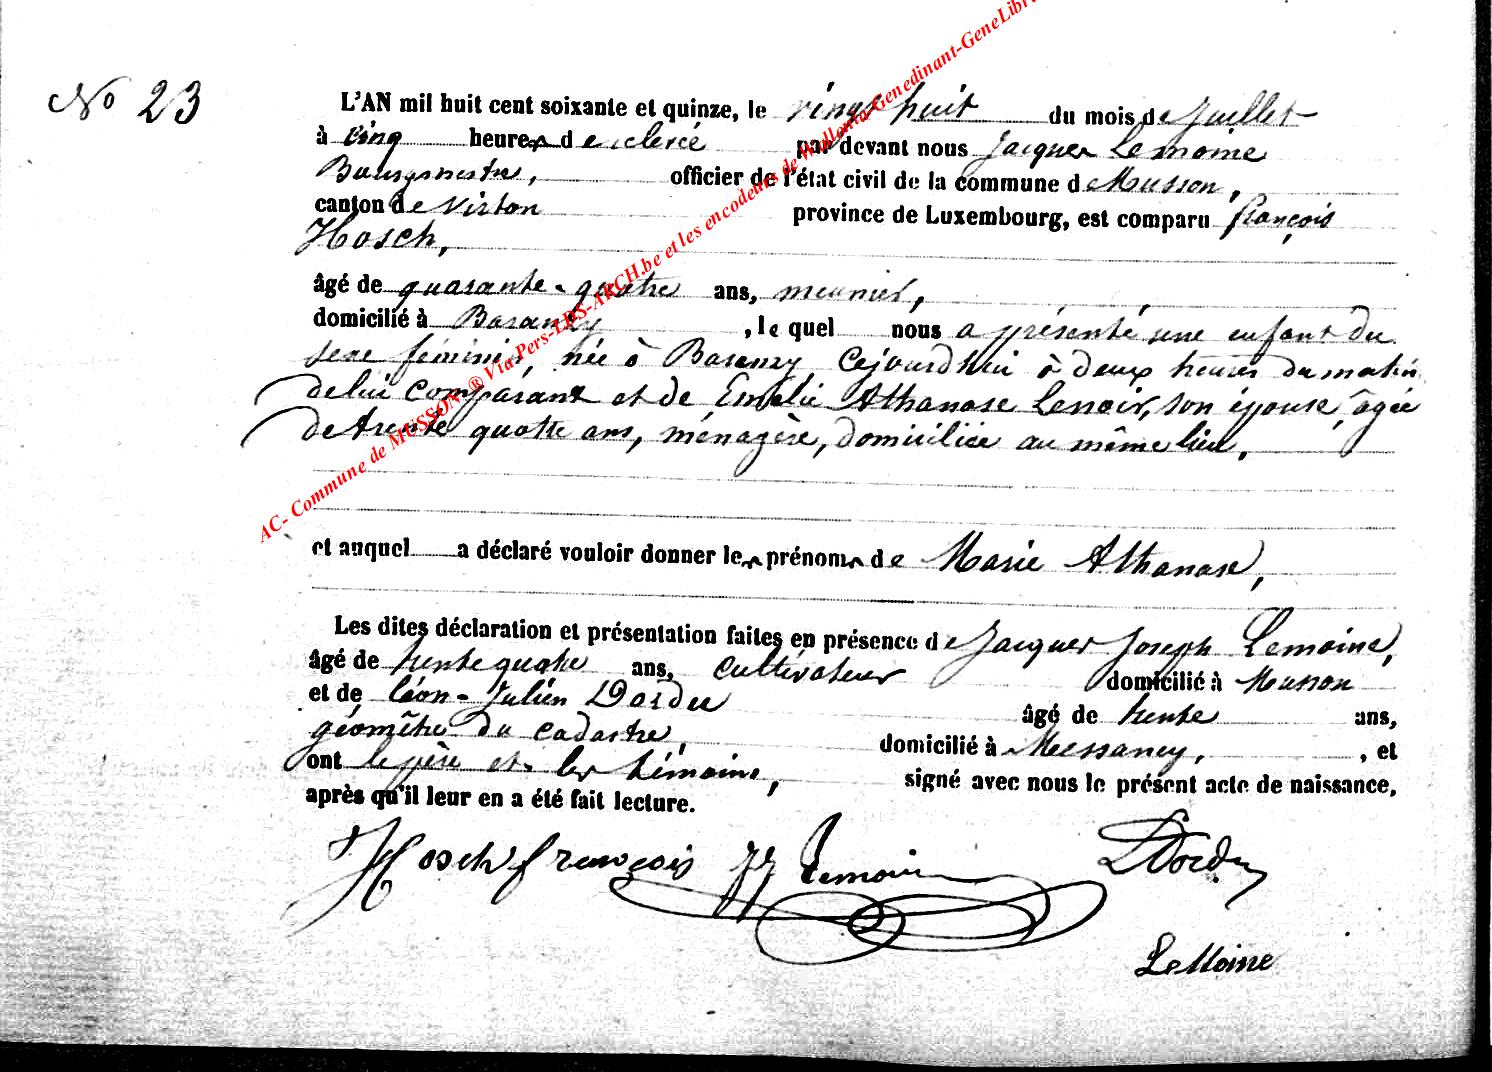 No 23
L'AN mil huit cent soixante et quinze, le vingt huit du mois de Juillet
à cinq heures de relevée par devant nous Jacques Lemoine
Bourgmestre, officier de l'état civil de la commune de Musson,
canton de Virton province de Luxembourg, est comparu françois
Hosch,
âgé de quarante-quatre ans, meunier,
domicilié à Baranzy, le quel nous a présenté une enfant du
sexe féminin, née à Baranzy cejourd'hui à deux heures du matin
de lui comparant et de Emélie Athanase Lenoir, son épouse, âgée
de trente quatre ans, ménagère, domiciliée au même lieu,
et auquel a déclaré vouloir donner les prénoms de Marie Athanase,
Les dites déclaration et présentation faites en présence de Jacques Joseph Lemoine,
âgé de trente quatre ans, cultivateur domicilié à Musson
et de léon-Julien Dordu âgé de trente ans,
géomètre du cadastre, domicilié à Messancy, , et
ont le père et les témoins, signé avec nous le présent acte de naissance,
après qu'il leur en a été fait lecture.
Hosch françois JJ Lemoine LDordu
LeMoine
AC- Commune de MUSSON ® Via Pers-LDS-ARCH.be et les encodeurs de Wallonia-Genedinant-GeneLibr